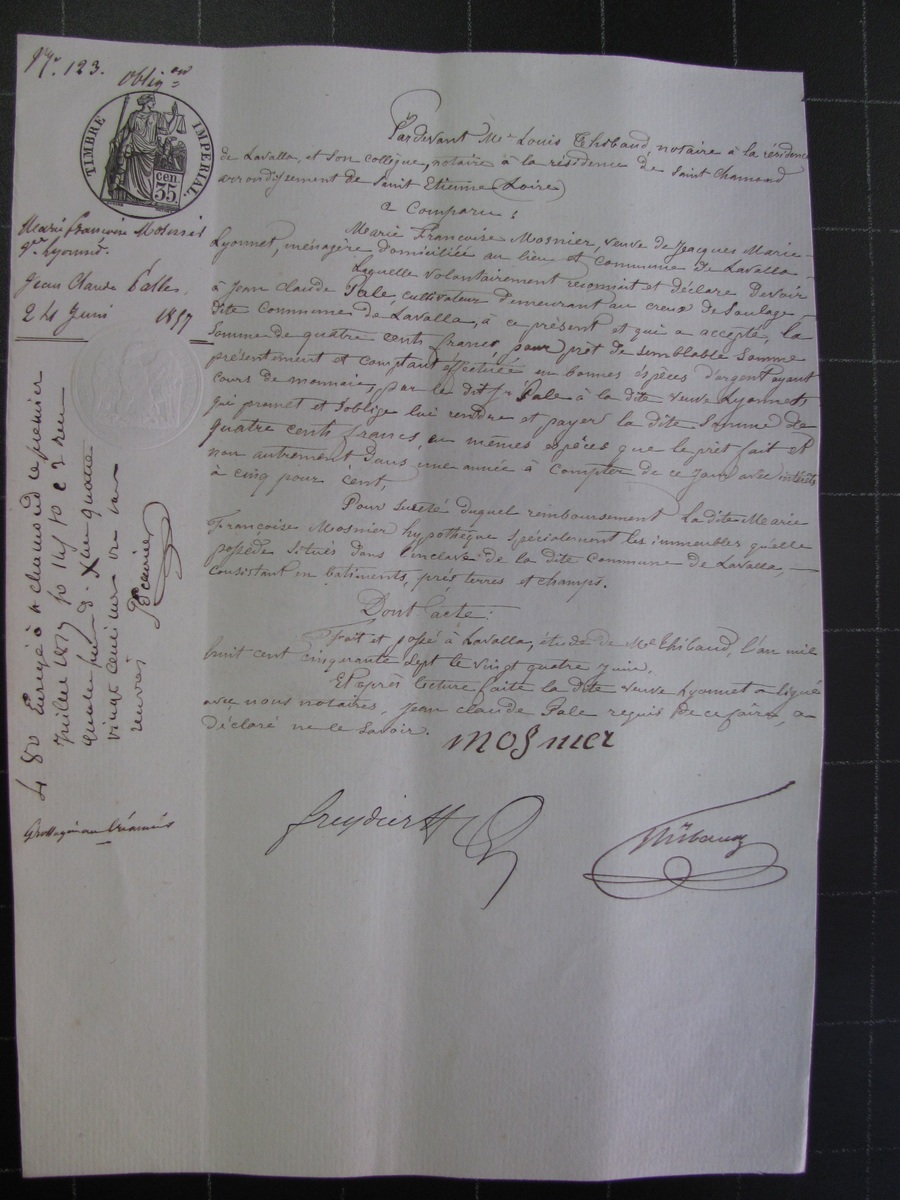 123.
oblig.on
TIMBRE IMPERIAL
35 cen.
Marie Francoise Mosnier
Ve Lyonnet
Jean Claude Palle
24 Juin 1857
Pardevant Me Louis Thibaud, notaire à la résidence
de Lavalla, et son collègue, notaire à la résidence de Saint Chamond
arrondissement de Saint Etienne (Loire)
a Comparu :
Marie Francoise Mosnier, veuve de Jacques Marie
Lyonnet, ménagère domiciliée au lieu et commune de Lavalla
Laquelle volontairement reconnait et déclare devoir
à Jean Claude Pale, cultivateur demeurant au creux de Soulage
dite Commune de Lavalla, à ce présent et qui a accepté, la
somme de quatre cents francs, pour prêt de semblable somme
présentement et comptant effectuée en bonnes espèces d'argent ayant
cours de monnaie, par le dit Jn Pale à la dite veuve Lyonnet,
qui promet et s'oblige lui rendre et payer la dite somme de
quatre cents francs, en mêmes espèces que le prêt fait et
non autrement dans une année à compter de ce jour avec intérêts
à cinq pour cent,
Pour sureté duquel remboursement la dite Marie
Francoise Mosnier hypothèque spécialement les immeubles qu'elle
possède situés dans l'enclave de la dite commune de Lavalla,
consistant en batiments, prés terres et champs.
Dont acte :
Fait et passé à Lavalla, étude de Me Thibaud, l'an mil
huit cent cinquante sept le vingt quatre juin,
Et après lecture faite la dite veuve Lyonnet a signé
avec nous notaires, Jean Claude Pale requis de ce faire, a
déclaré ne le savoir.
mosnier
freydier
Thibaud
480 Enregé à St chamond le premier
Juillet 1857 fo 145
vingt centimes